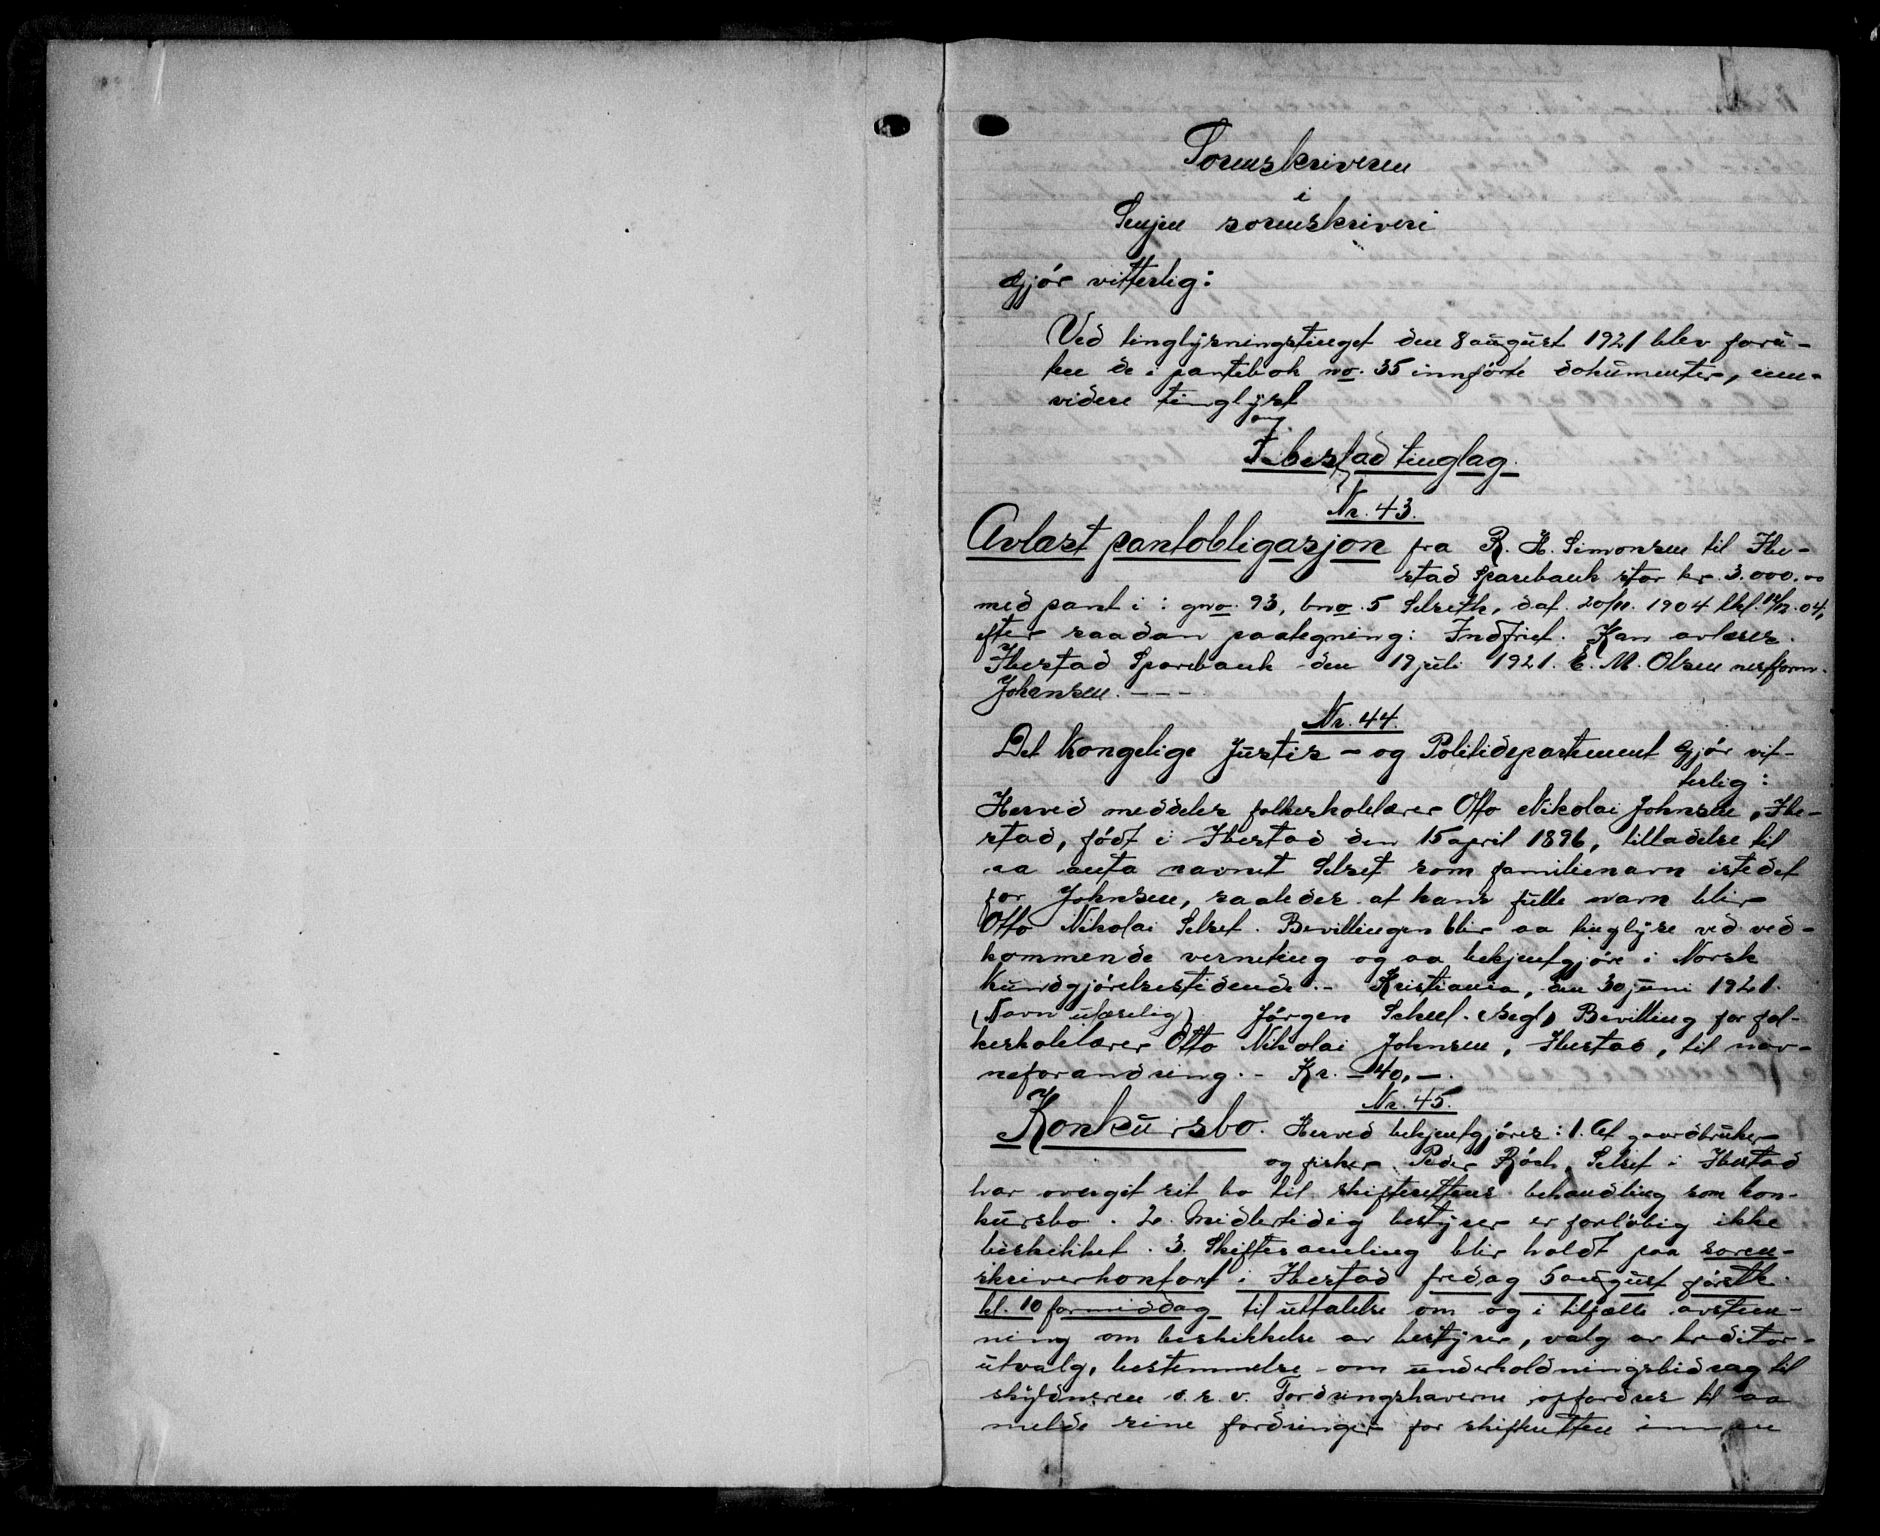 Sorenskriveren
i
Senjen sorenskriveri
Gjör vitterlig:
Ved tinglysningstinget den 8 august 1921 blev foru-
ten de i pantebok no. 35 innførte dokumenter, enn-
videre tinglyst
Ibestad tinglag.
Nr. 43.
Avlæst pantobligasjon fra R. H. Simonsen til Ibe-
stad Sparebank stor kr. 3.000.00
med pant i: gno. 93, bno. 5 Selseth, dat. 20/11. 1904 thl. 12/12.04,
efter saadan paategning: Indfriet. Kan avlæses.
Ibestad Sparebank den 19 juli 1921. E. M. Olsen nestform.
Johansen. - - -
Nr. 44.
Det Kongelige Justis- og Politidepartement Gjør vit-
terlig:
Herved meddeles folkeskolelærer Otto Nikolai Johnsen, Ibe-
stad, født i Ibestad den 15 april 1896, tilladelse til
aa anta navnet Selset som familienavn istedet
for Johnsen, saaledes at hans fulle navn blir
Otto Nikolai Selset. Bevillingen blir aa tinglyse ved ved-
kommende verneting og aa bekjentgjøre i Norsk
Kundgjørelsestidende. - Kristiania, den 30 juni 1921.
(Navn ulæselig) Jørgen Scheel. (Segl) Bevilling for fol-
keskolelærer Otto Nikolai Johnsen, Ibestad, til nav-
neforandring. - Kr. - 40, -.
Nr. 45.
Konkursbo. Herved bekjentgjøres: 1. At gaardbruker
og fisker Peder Röch, Selset i Ibestad
har overgit sit bo til skifterettens behandling som kon-
kursbo. 2. Midlertidig bestyrer er forløbig ikke
beskikket. 3. Skiftesamling blir holdt paa soren-
skriverkontort i Ibestad fredag 5 august førstk.
kl. 10 formiddag til uttalelse om og i tilfælle avstem-
ning om beskikkelse av bestyrer, valg av kreditor-
utvalg, bestemmelse om underholdningsbidrag til
skyldneren o. s. v. Fordringshaverne opfordres til aa
melde sine fordringer for skifteretten innen